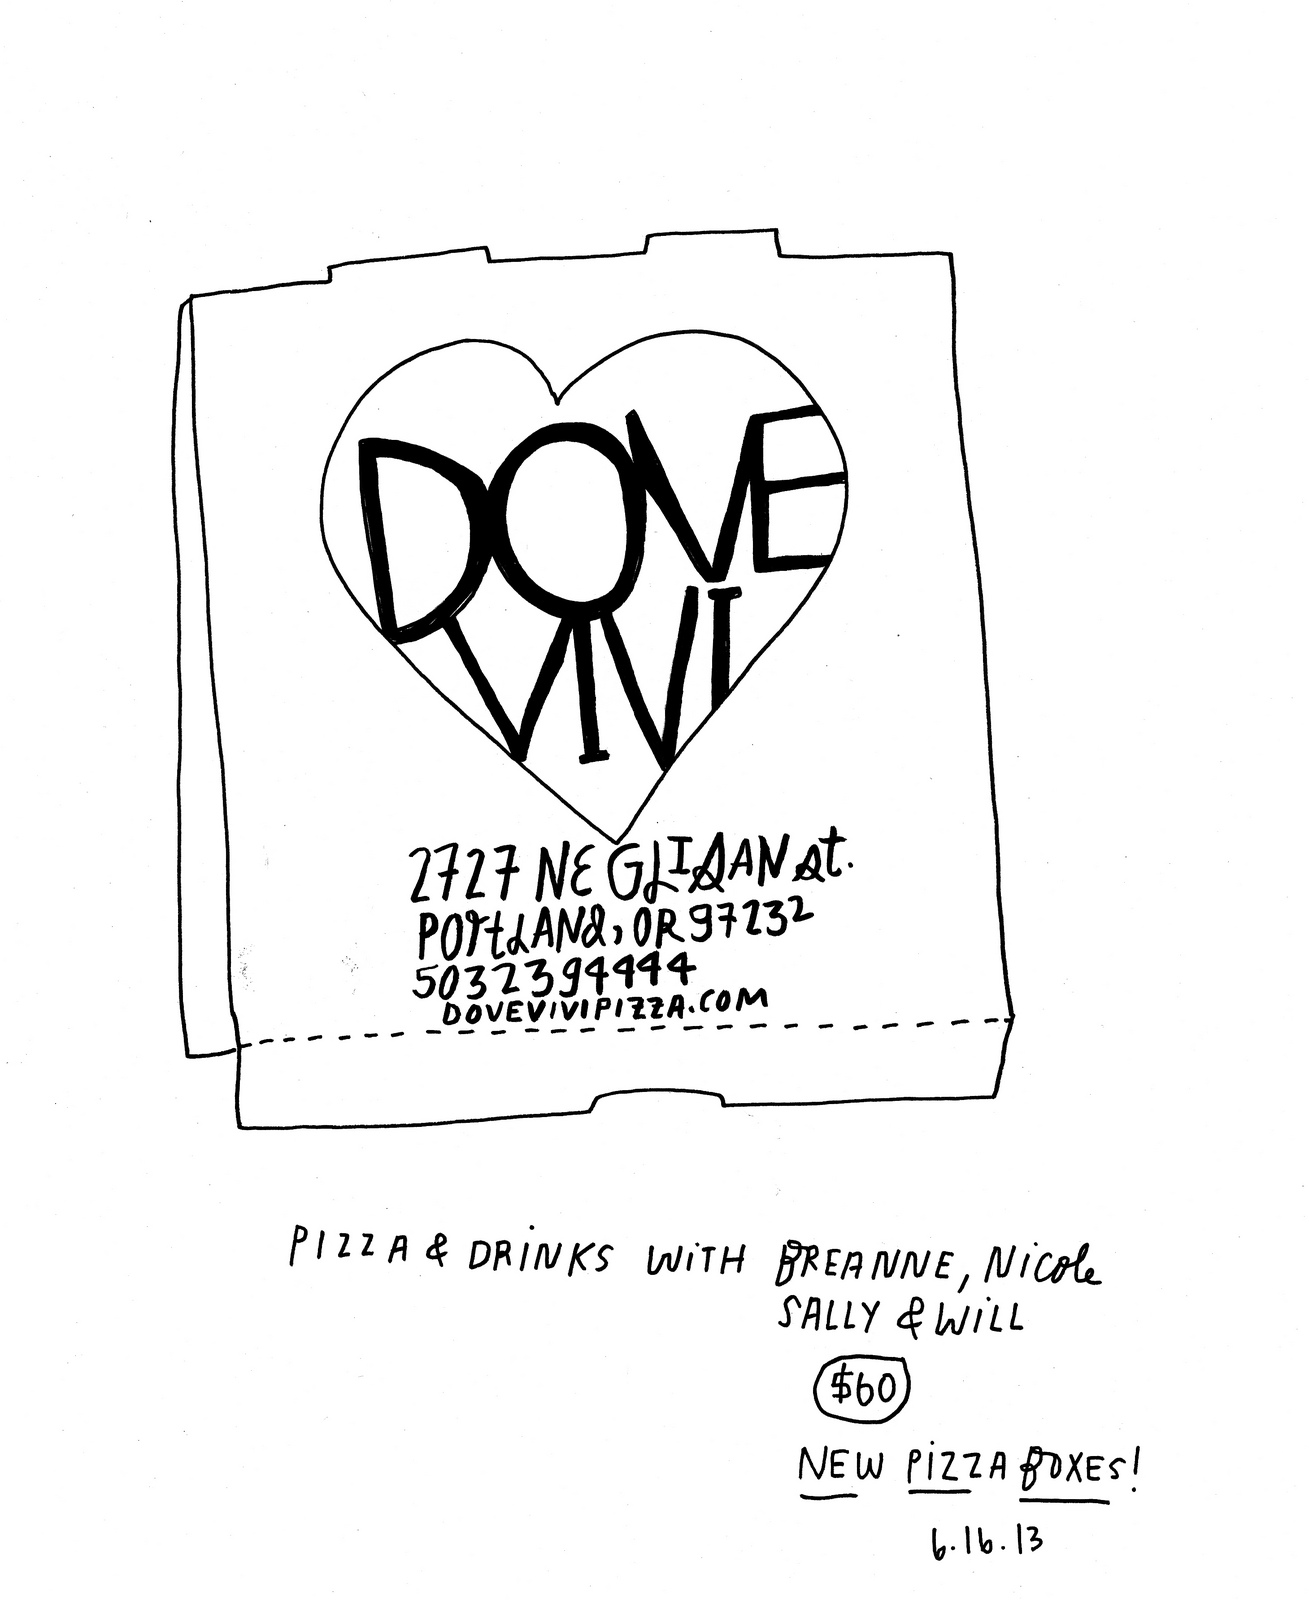 DOVE
VIVI
2727 NE GLISAN St.
PORtLANd, OR 97232
5032394444
DOVEVIVIPIZZA.COM
PIZZA & DRiNKS WiTH BREANNE, Nicole
SALLY & WiLL
$60
NEW PiZZA BOXES!
6.16.13